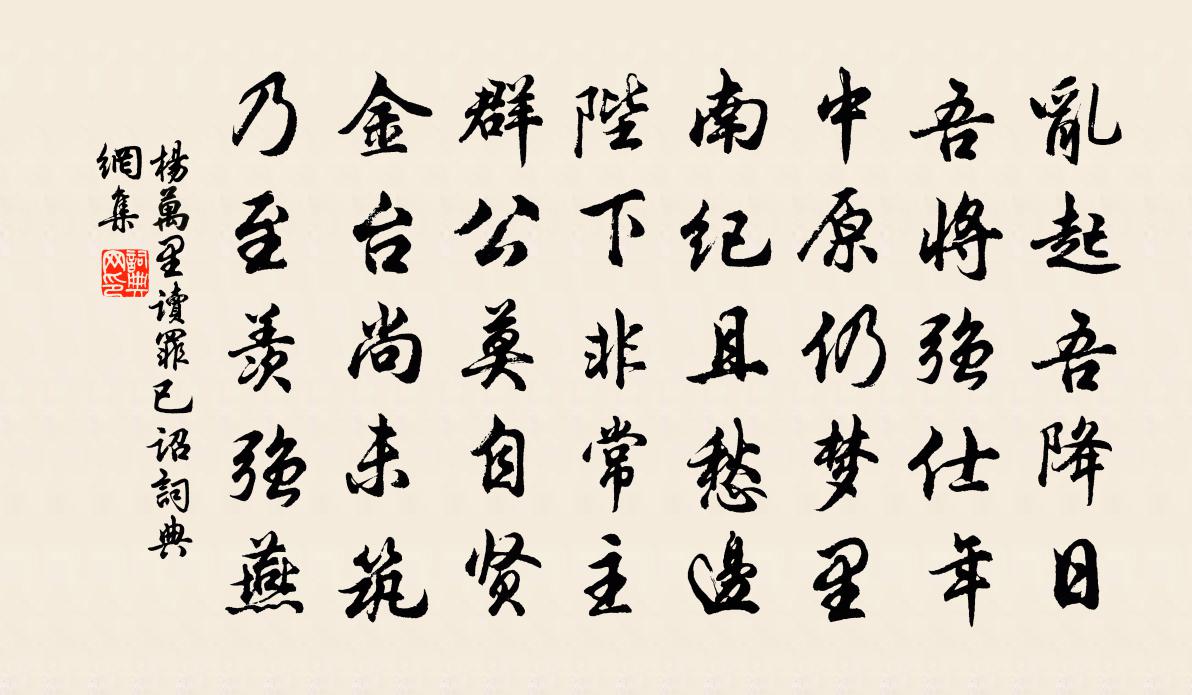 亂起吾降日
吾將强仕年
中原仍梦里
南纪且愁邊
陛下非常主
群公莫自贤
金台尚未筑
乃至羨强燕
楊萬里讀罪己詔詞典
網集
詞典
网印